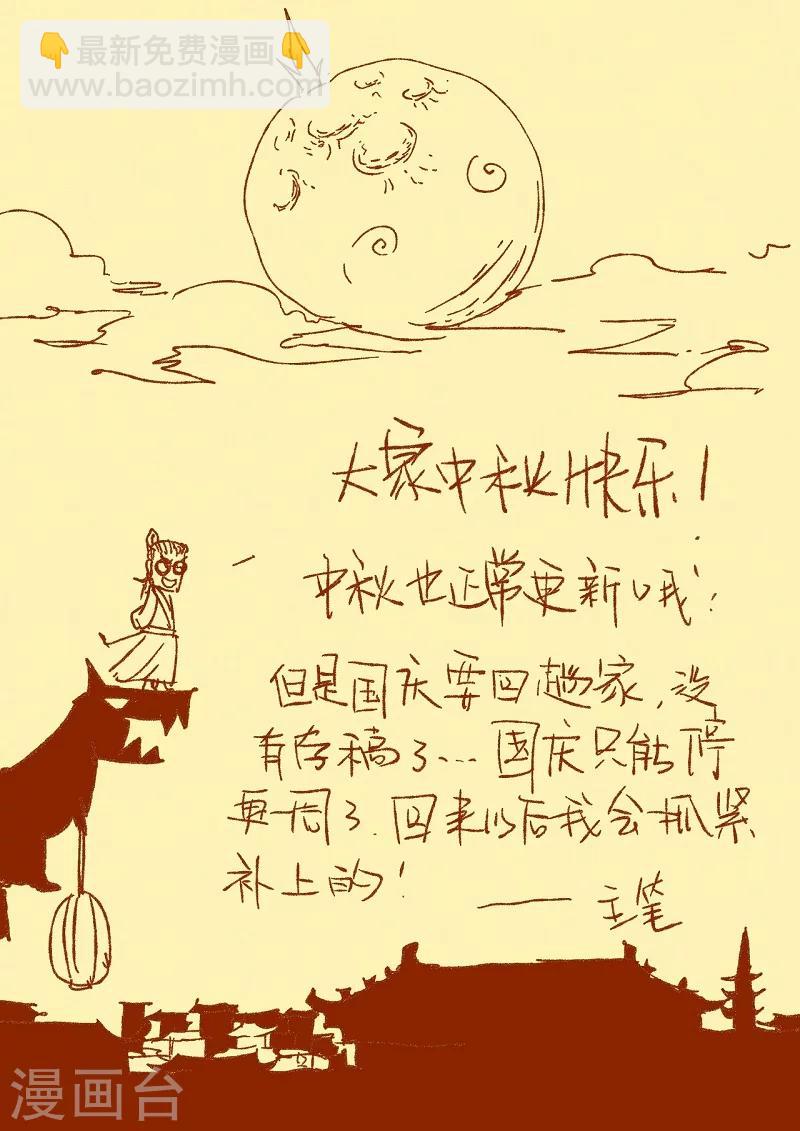 👇最新免费漫画👇
www.baozimh.com
大家中秋快乐！
中秋也正常更新哦！
但是国庆要回趟家，没
有存稿了…国庆只能停
更一周了.回来以后我会抓紧
补上的！
——主笔
漫画台